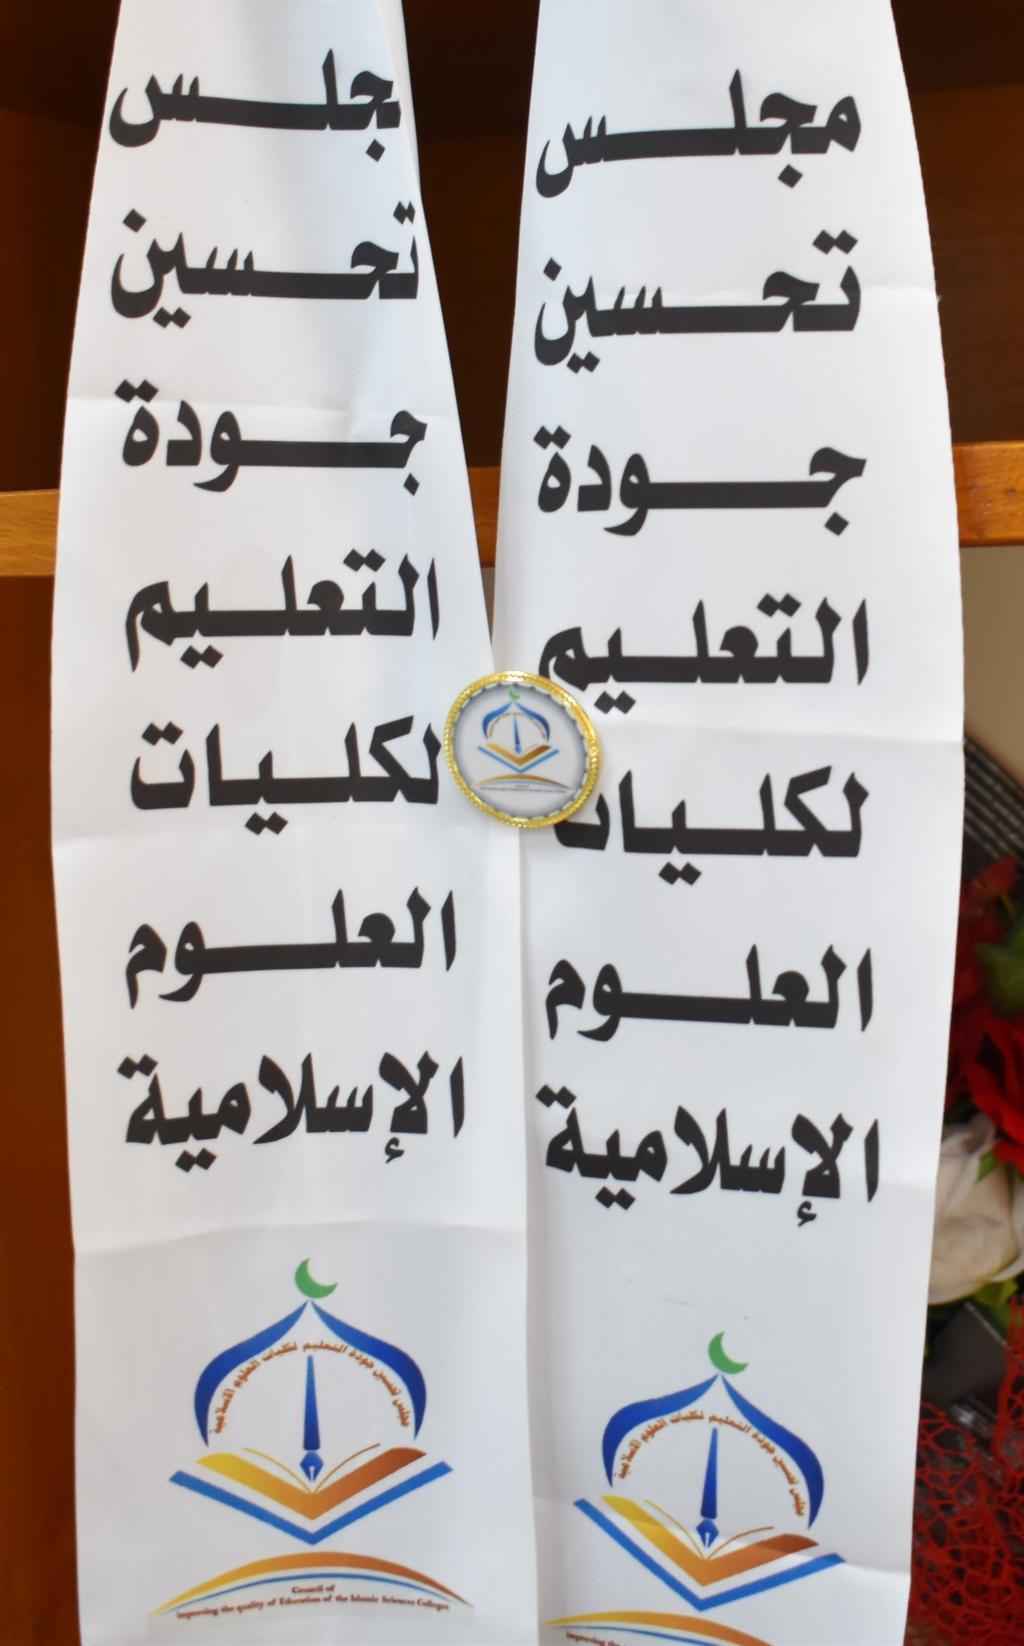 مجلس
تحسين
جودة
التعليم
لكليات
العلوم
الإسلامية
مجلس تحسين جودة التعليم لكليات العلوم الاسلامية
improving the
جلس
تحسين
جودة
التعليم
لكليات
العلوم
الإسلامية
مجلس تحسين جودة التعليم لكليات العلوم الاسلامية
Council of
improving the quality of Education of the Islamic Sciences Colleges